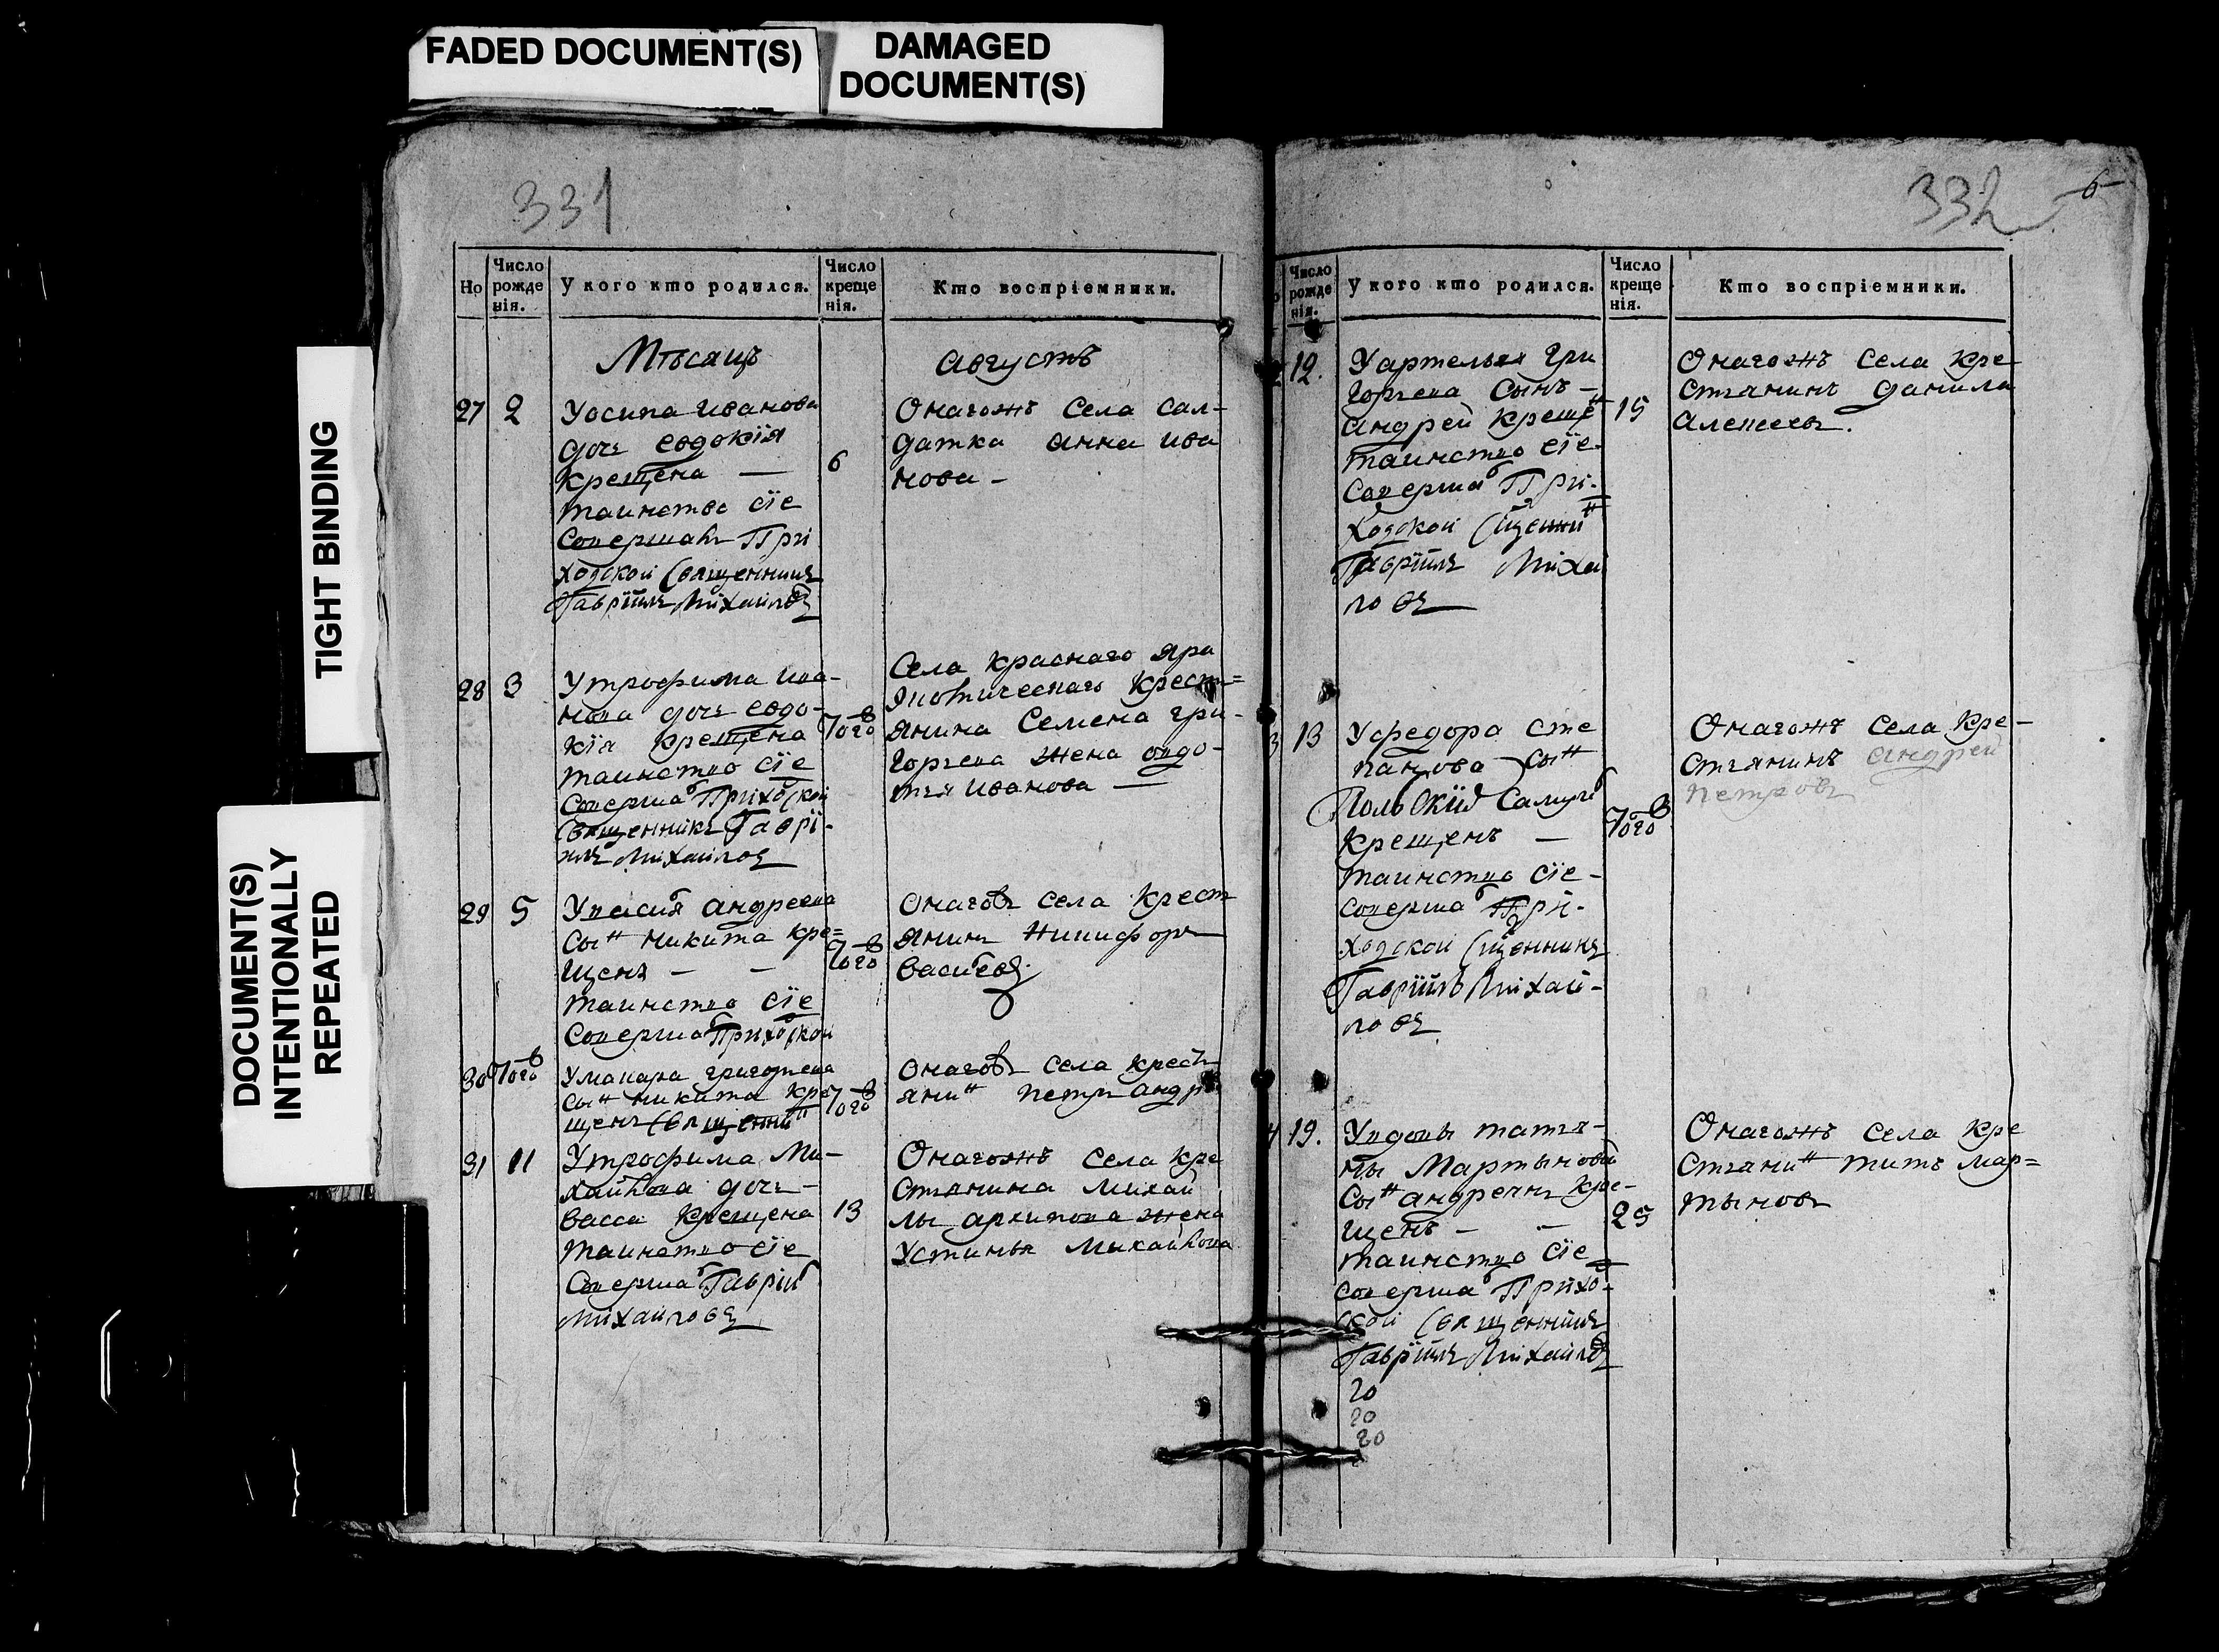 FADED DOCUMENT(S)
DAMAGED
DOCUMENT(S)
TIGHT BINDING
DOCUMENT(S)
INTENTIONALLY
REPEATED
331
Но
Число рожде нія.
У кого кто родился.
Число креще нія.
Кто воспріемники.
Мѣсяцъ Августъ
27 2 Уосипа иванова
дочь евдокїя
крещена —
таинство сїе
Совершалъ Прі
ходской Священникъ
Гаврїилъ Міхайловъ
6
Онагожъ Села Сал-
датка анна ива
нова -
28 3 Утрофима ива-
нова дочь евдо-
кїя крещена
таинство сїе
Соверша Приходской
Священникъ Гаврї-
илъ Міхайлов
Села Краснаго Яра
крест=
янина Семена гри-
горьева жена овдо-
тья иванова —
29 5 андреева
Сын никита кре=
щенъ — —
таинство сїе
Соверша Приходской
села крест
янинъ никифоръ
30 Умакара григорьева
Сын никита кре
щенъ Священни
села крест
янин петръ андр
31 11 Утрофима Ми-
хайлова дочь -
васса крещена
таинство сїе
Соверша Гаврїил
Міхайловъ
13
Онагожъ села кре
стьянина михай
лы архипова жена
Устинья михайлова
332
6
Число рожде нія.
У кого кто родился.
Число креще нія.
Кто воспріемники.
12. Гри
горьева Сынъ -
андрей крещен
таинство сїе-
Соверша При-
ходской
Гаврїилъ Міхай
ловъ
15
Онагожъ села кре
стьянинъ данила
Алексеевъ.
13 Уфедора сте
панова Сын
крещенъ —
таинство сїе -
Соверша Прі-
ходской
Гаврїилъ Міхай-
ловъ
Онагожъ села кре-
стьянинъ андрей
петровъ
19. Увдовы татья-
ны Мартыновой
Сын кре-
щенъ — —
таинство сїе
Соверша Прихо-
ской Священникъ
Гаврїилъ Міхайлов
20
20
20
25
Онагожъ села кре
стьянин титъ мар=
тыновъ